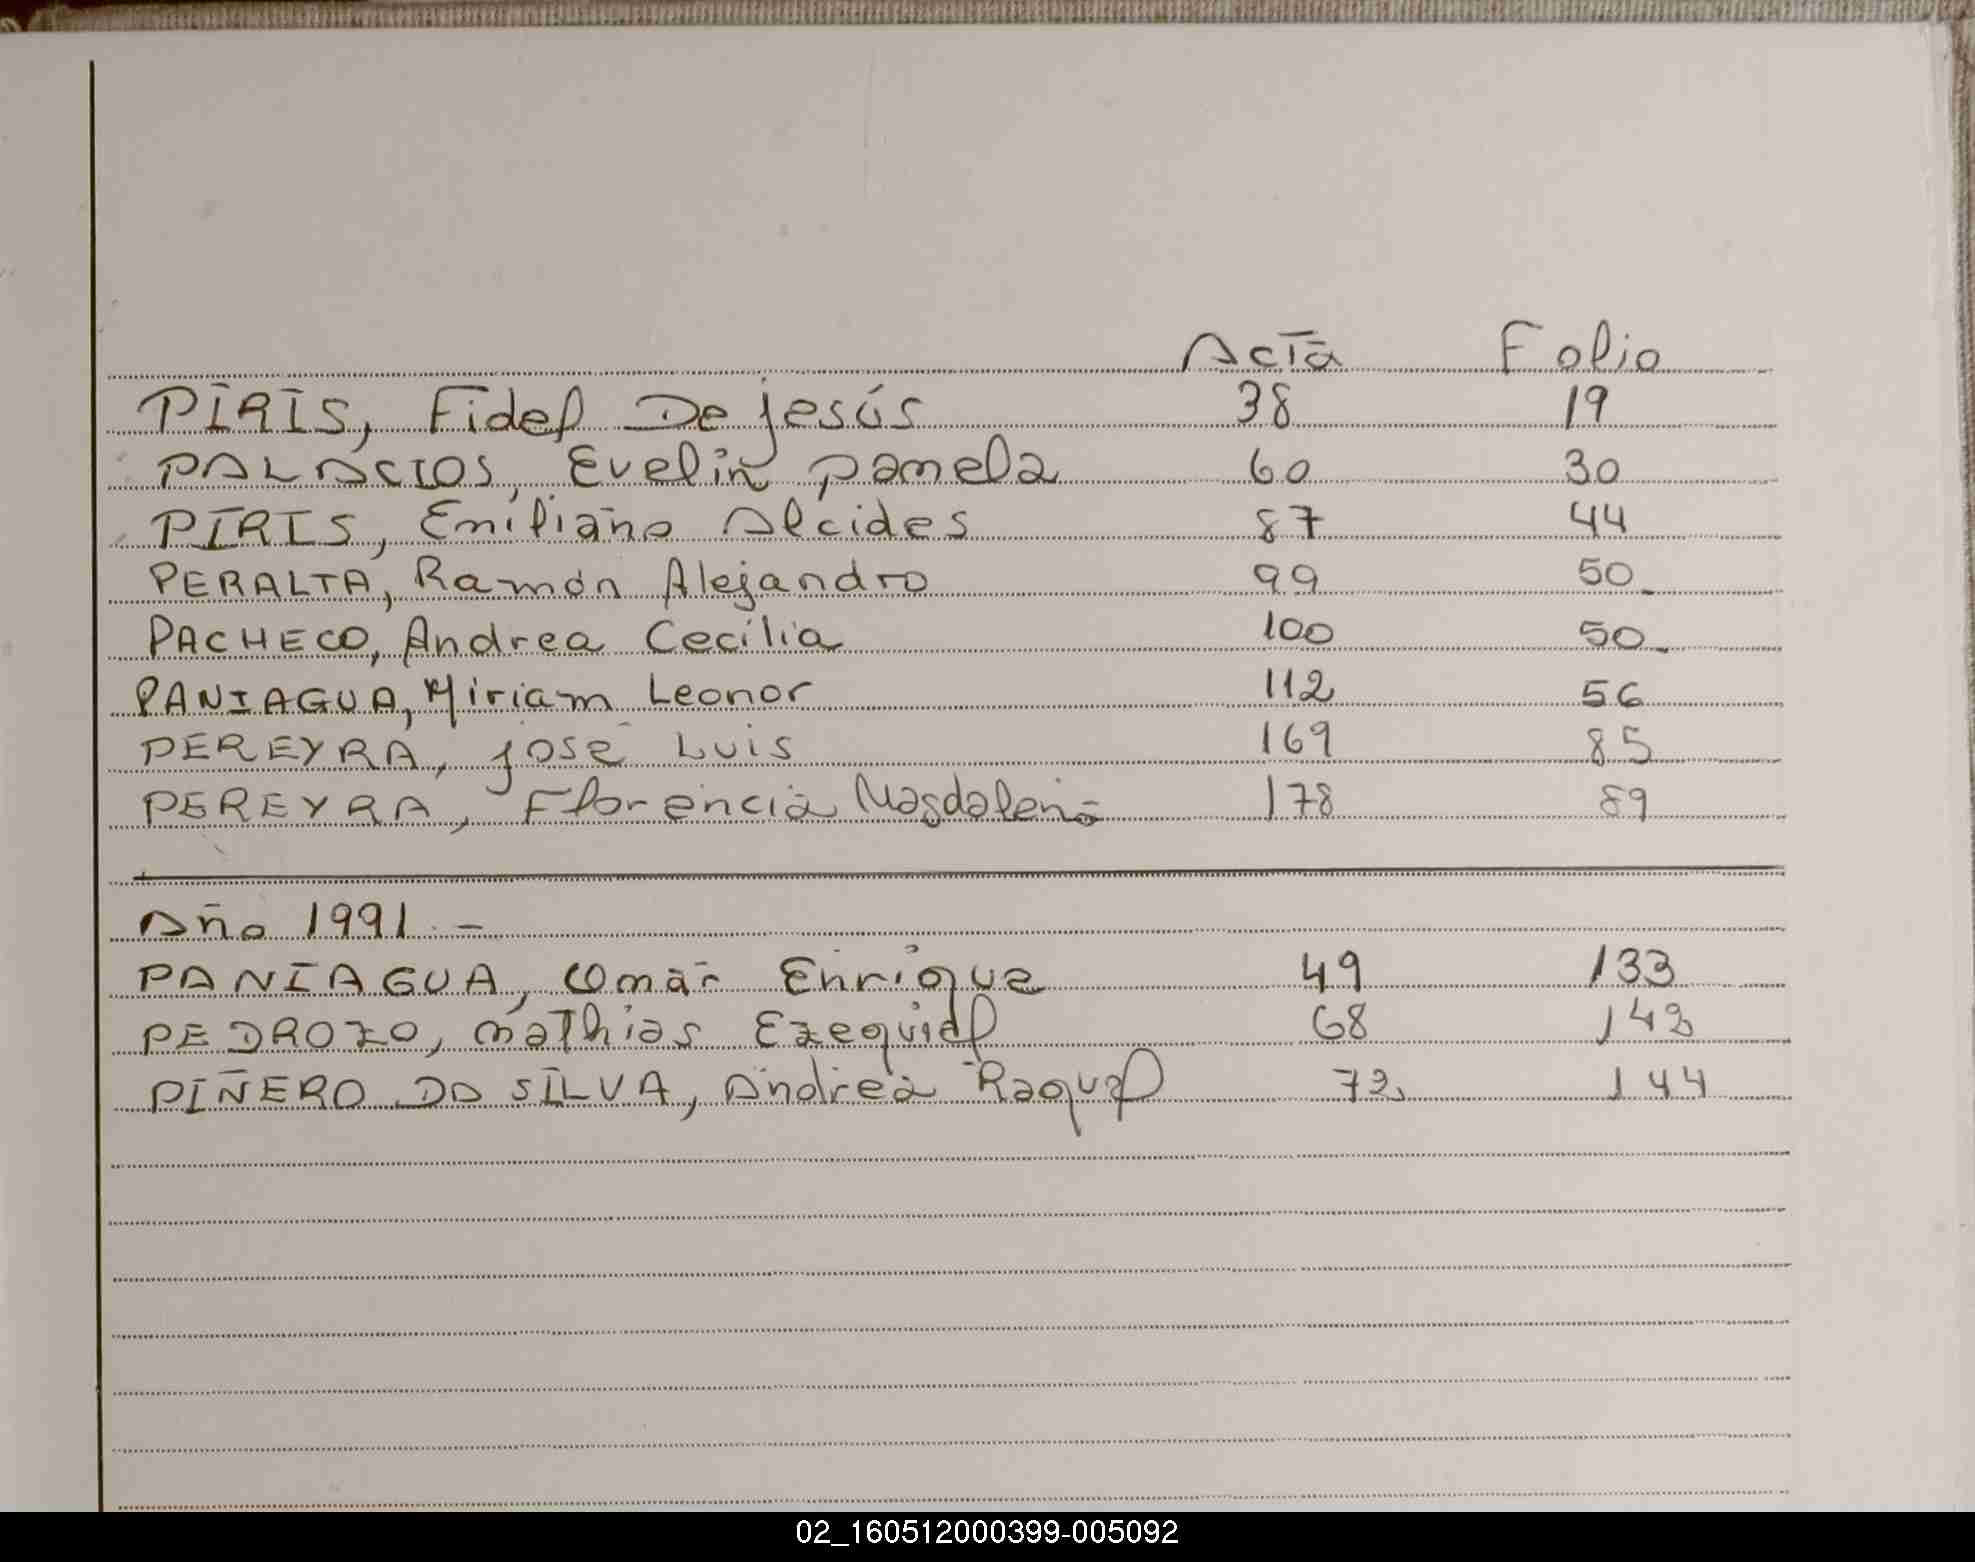 Acta Folio
PIRIS, Fidel De jesús 38 19
PALACIOS, Evelin pamela 60 30
PIRIS, Emiliano Alcides 87 44
PERALTA, Ramón Alejandro 99 50
PACHECO, Andrea Cecilia 100 50
PANIAGUA, Miriam Leonor 112 56
PEREYRA, josé Luis 169 85
PEREYRA, Florencia Magdalena 178 89
Año 1991.-
PANIAGUA, Omar Enrique 49 133
PEDROZO, mathias Ezequiel 68 142
PIÑERO DA SILVA, Andrea Raquel 72 144
02_160512000399-005092